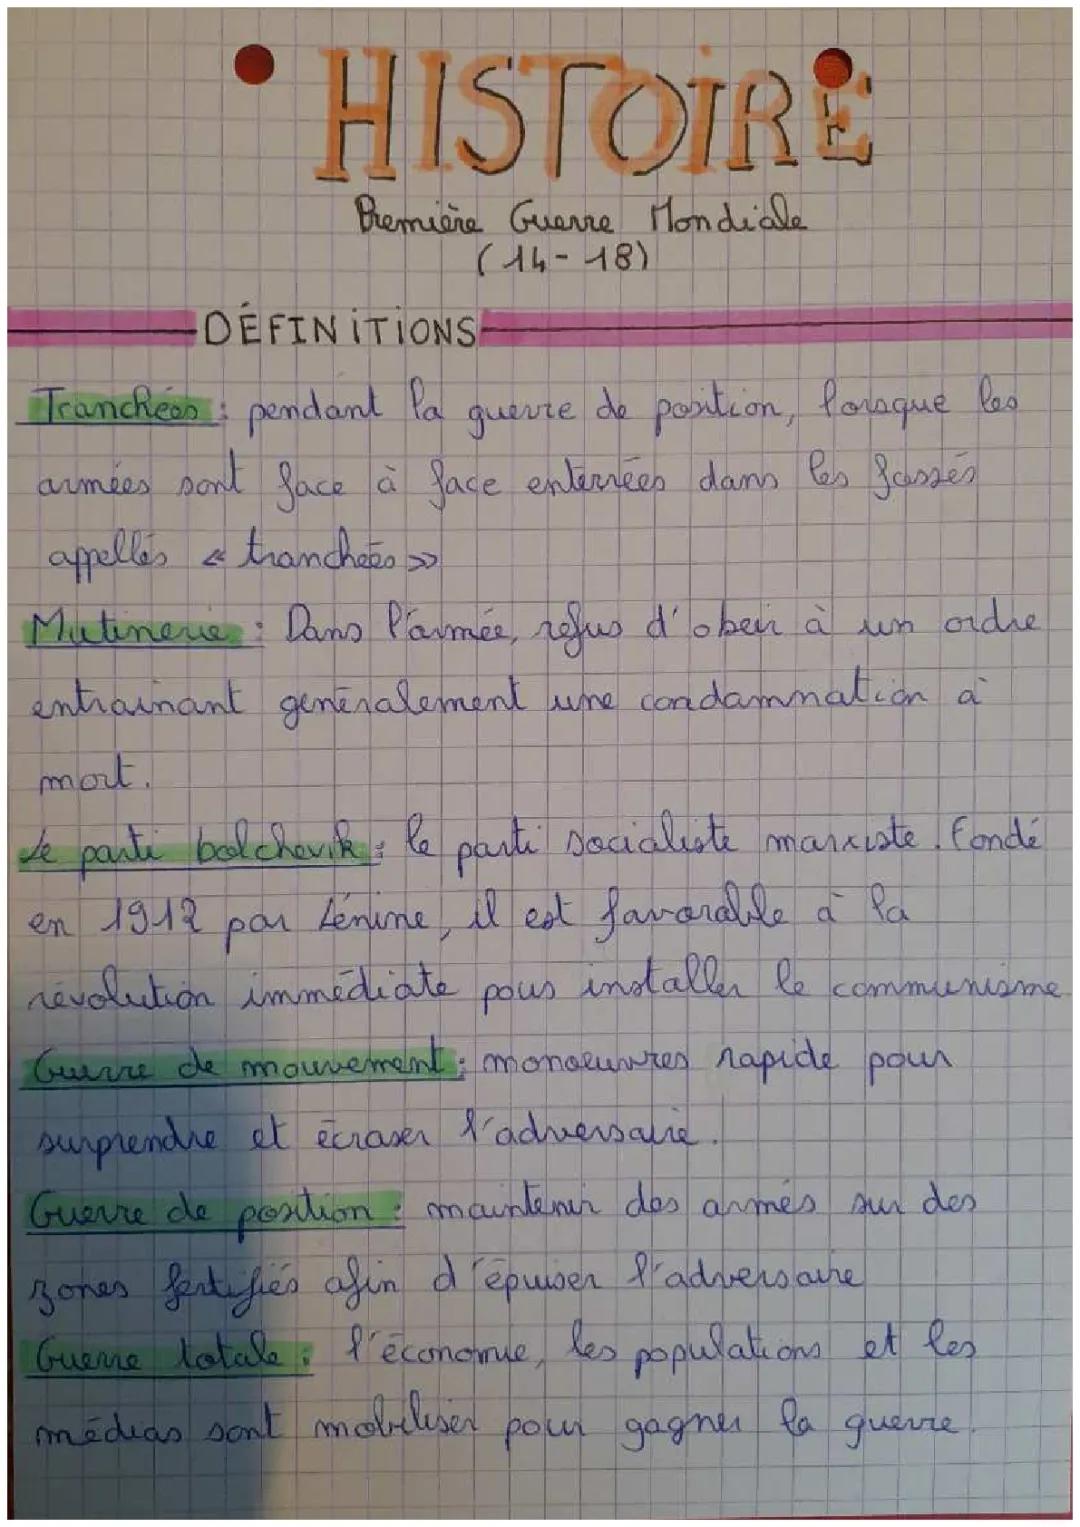 HISTOIRE
Première Guerre Mondiale
(14-18)
DÉFINITIONS
Tranchées : pendant la guerre de position, lorsque les
armées sont face à face enterrées dans les fossés
appellés « tranchées »
Mutinerie : Dans l'armée, refus d'obeir à un ordre
entrainant généralement une condamnation à
mort.
Le parti bolchevik : le parti socialiste marxiste. Fondé
en 1912 par Lénine, il est favorable à la
révolution immédiate pour installer le communisme
Guerre de mouvement : monoeuvres rapide pour
surprendre et écraser l'adversaire.
Guerre de position : maintenir des armés sur des
zones fortifiés afin d'épuiser l'adversaire
Guerre totale : l'économie, les populations et les
médias sont mobiliser pour gagner la guerre.